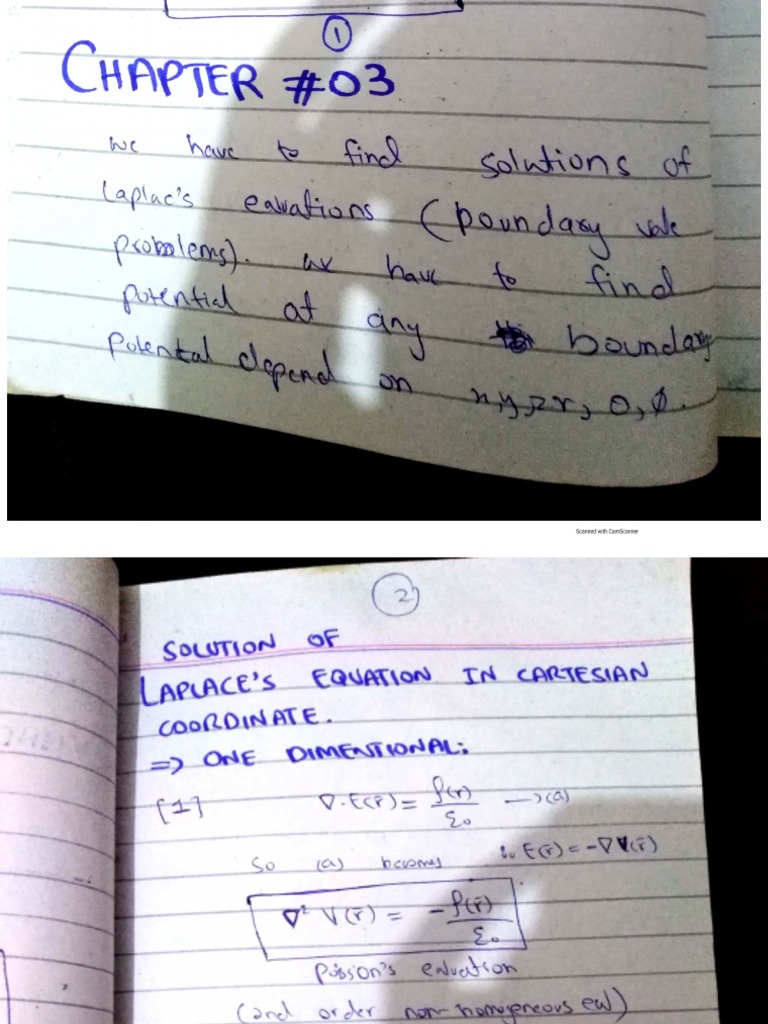 1
CHAPTER #03
we have to find solutions of
Laplac's eauations (boundary vale
probolems). we have to find
potential at any boundary
potental depend on x,y,z r, θ, φ.
Scanned with CamScanner
2
SOLUTION OF
LAPLACE'S EQUATION IN CARTESIAN
COORDINATE.
=> ONE DIMENTIONAL:
[1] ∇.E(r̄) = ρ(r)/ε₀ —>(a)
So (a) becomes ∵ E(r̄) = -∇V(r̄)
∇² V(r̄) = -ρ(r̄)/ε₀
Poisson's eauation
(2nd order non-homogeneous eq)